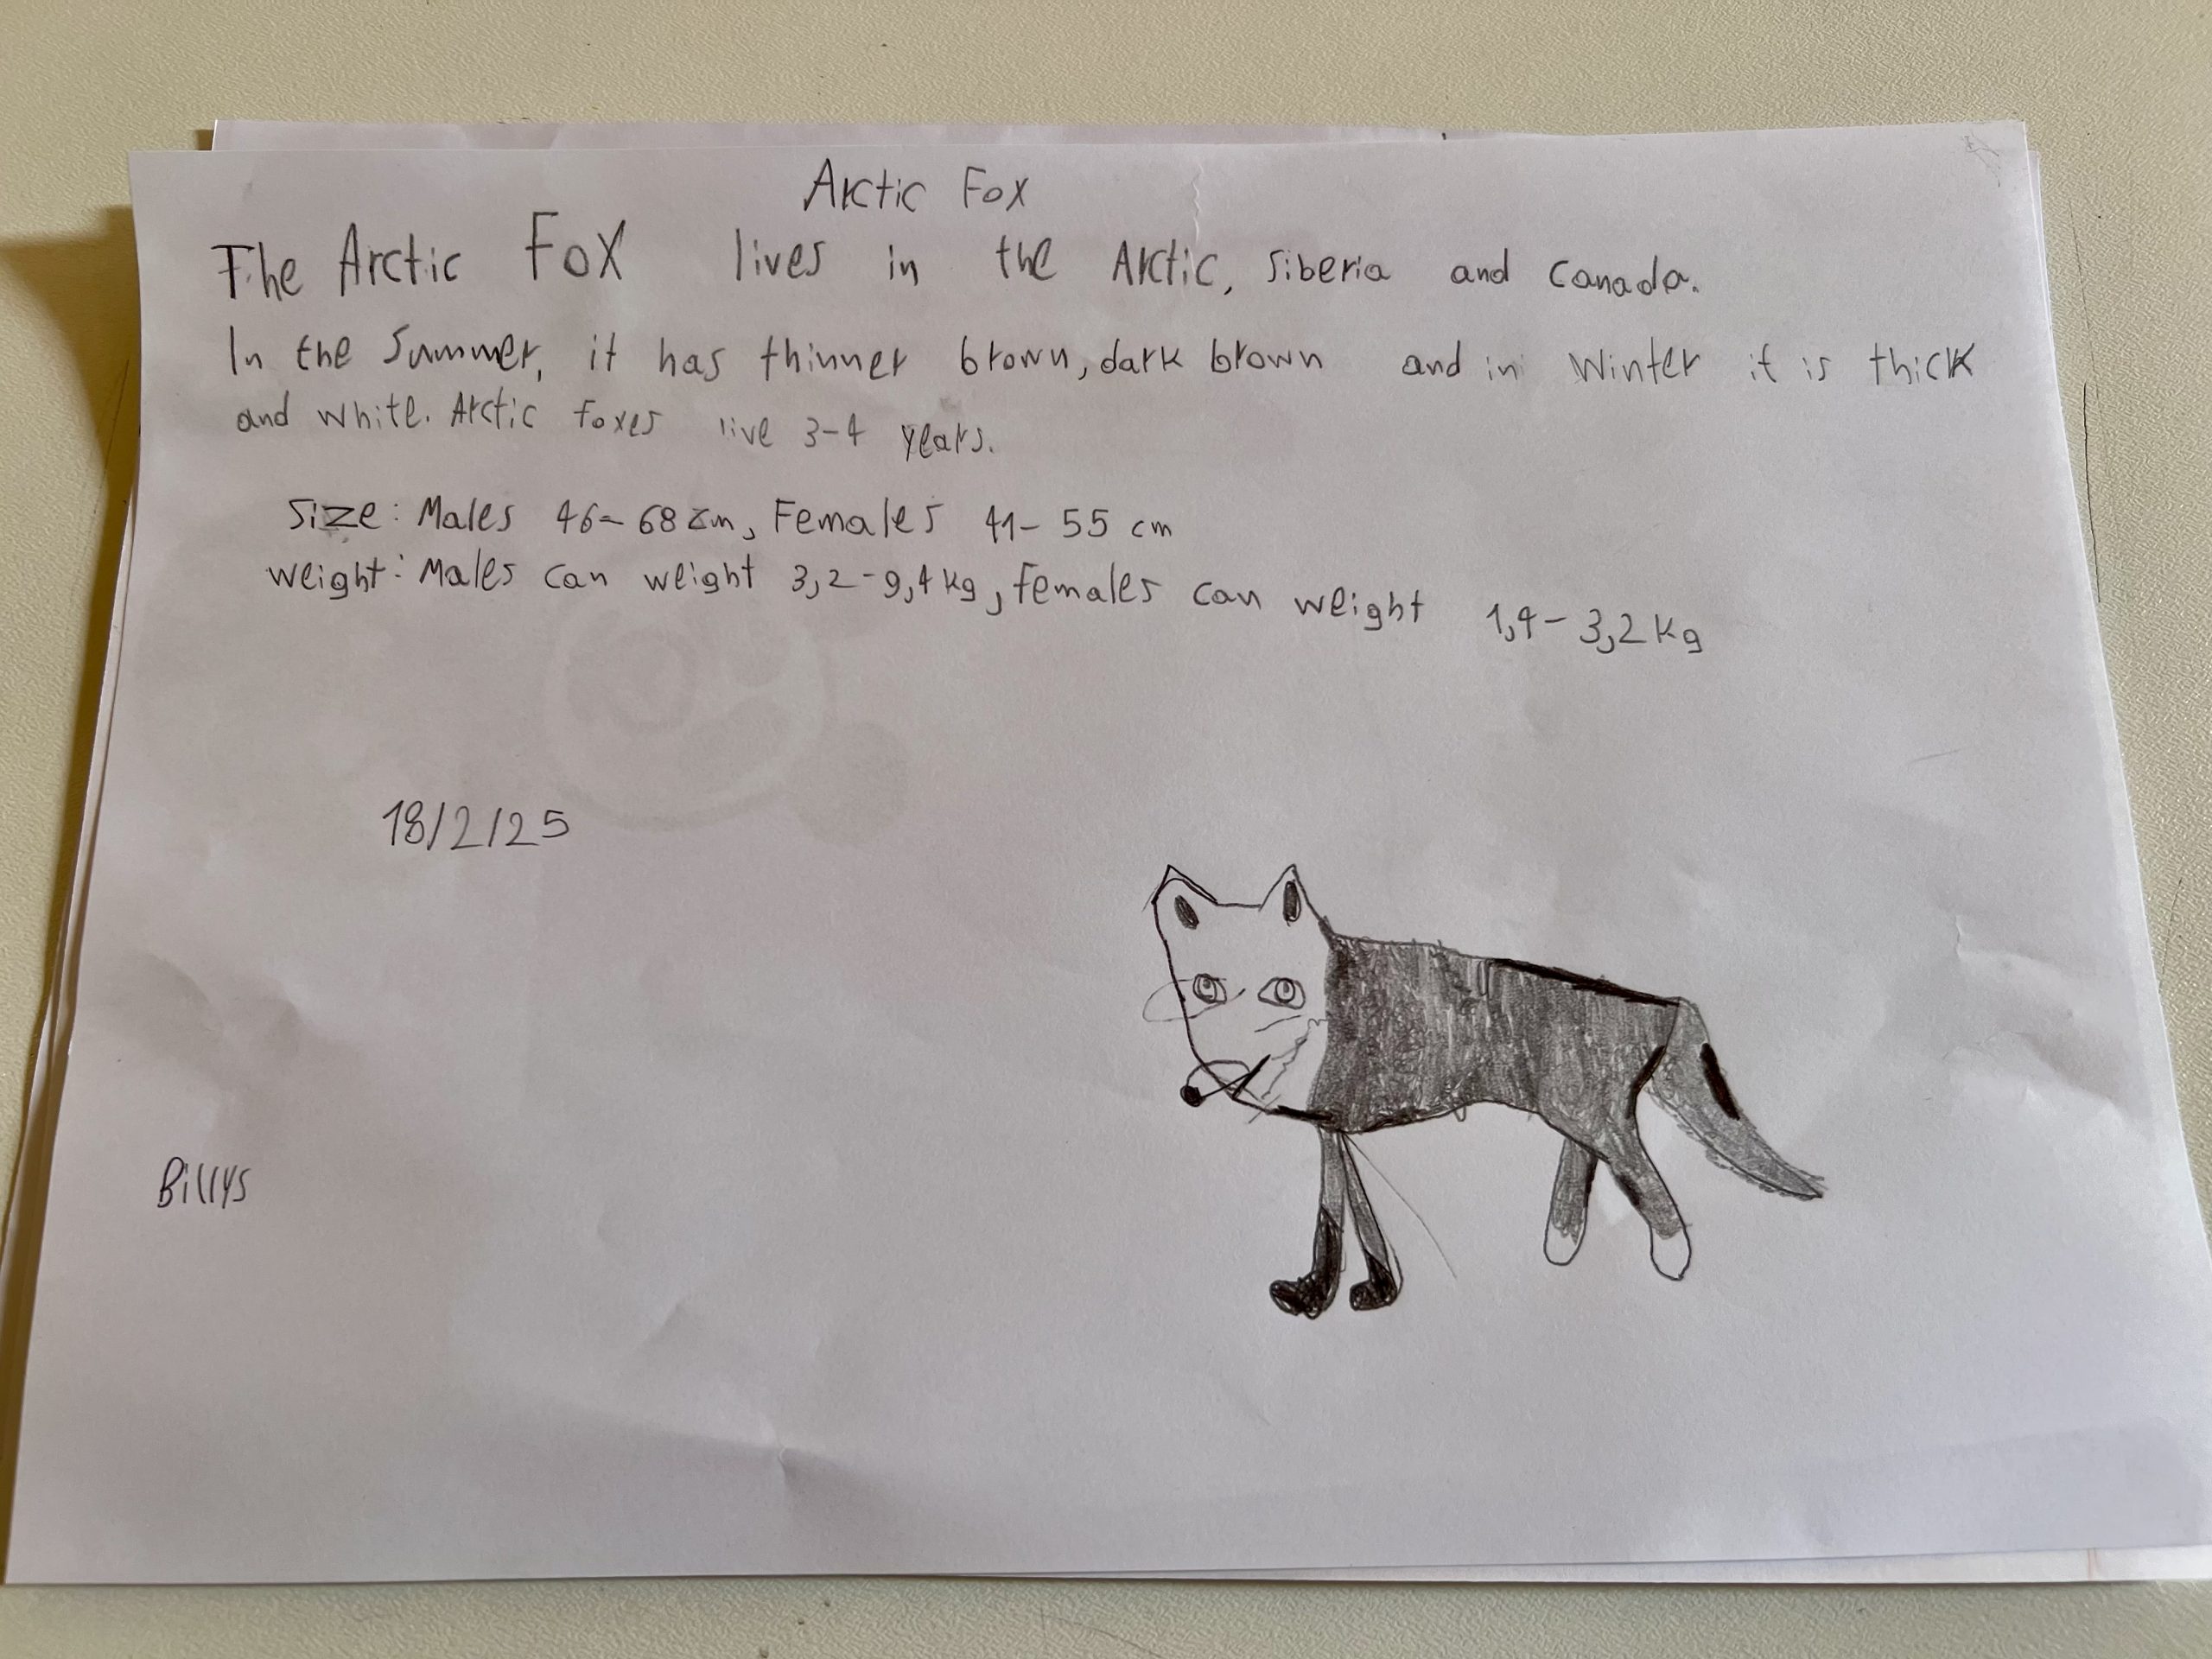 Arctic Fox
The Arctic Fox lives in the Arctic, Siberia and Canada.
In the Summer, it has thinner brown, dark brown and in Winter it is thick
and white. Arctic foxes live 3-4 years.
Size: Males 46-68 cm, Females 41-55 cm
weight: Males can weight 3,2-9,4 kg, females can weight 1,4-3,2 kg
18/2/25
Billys